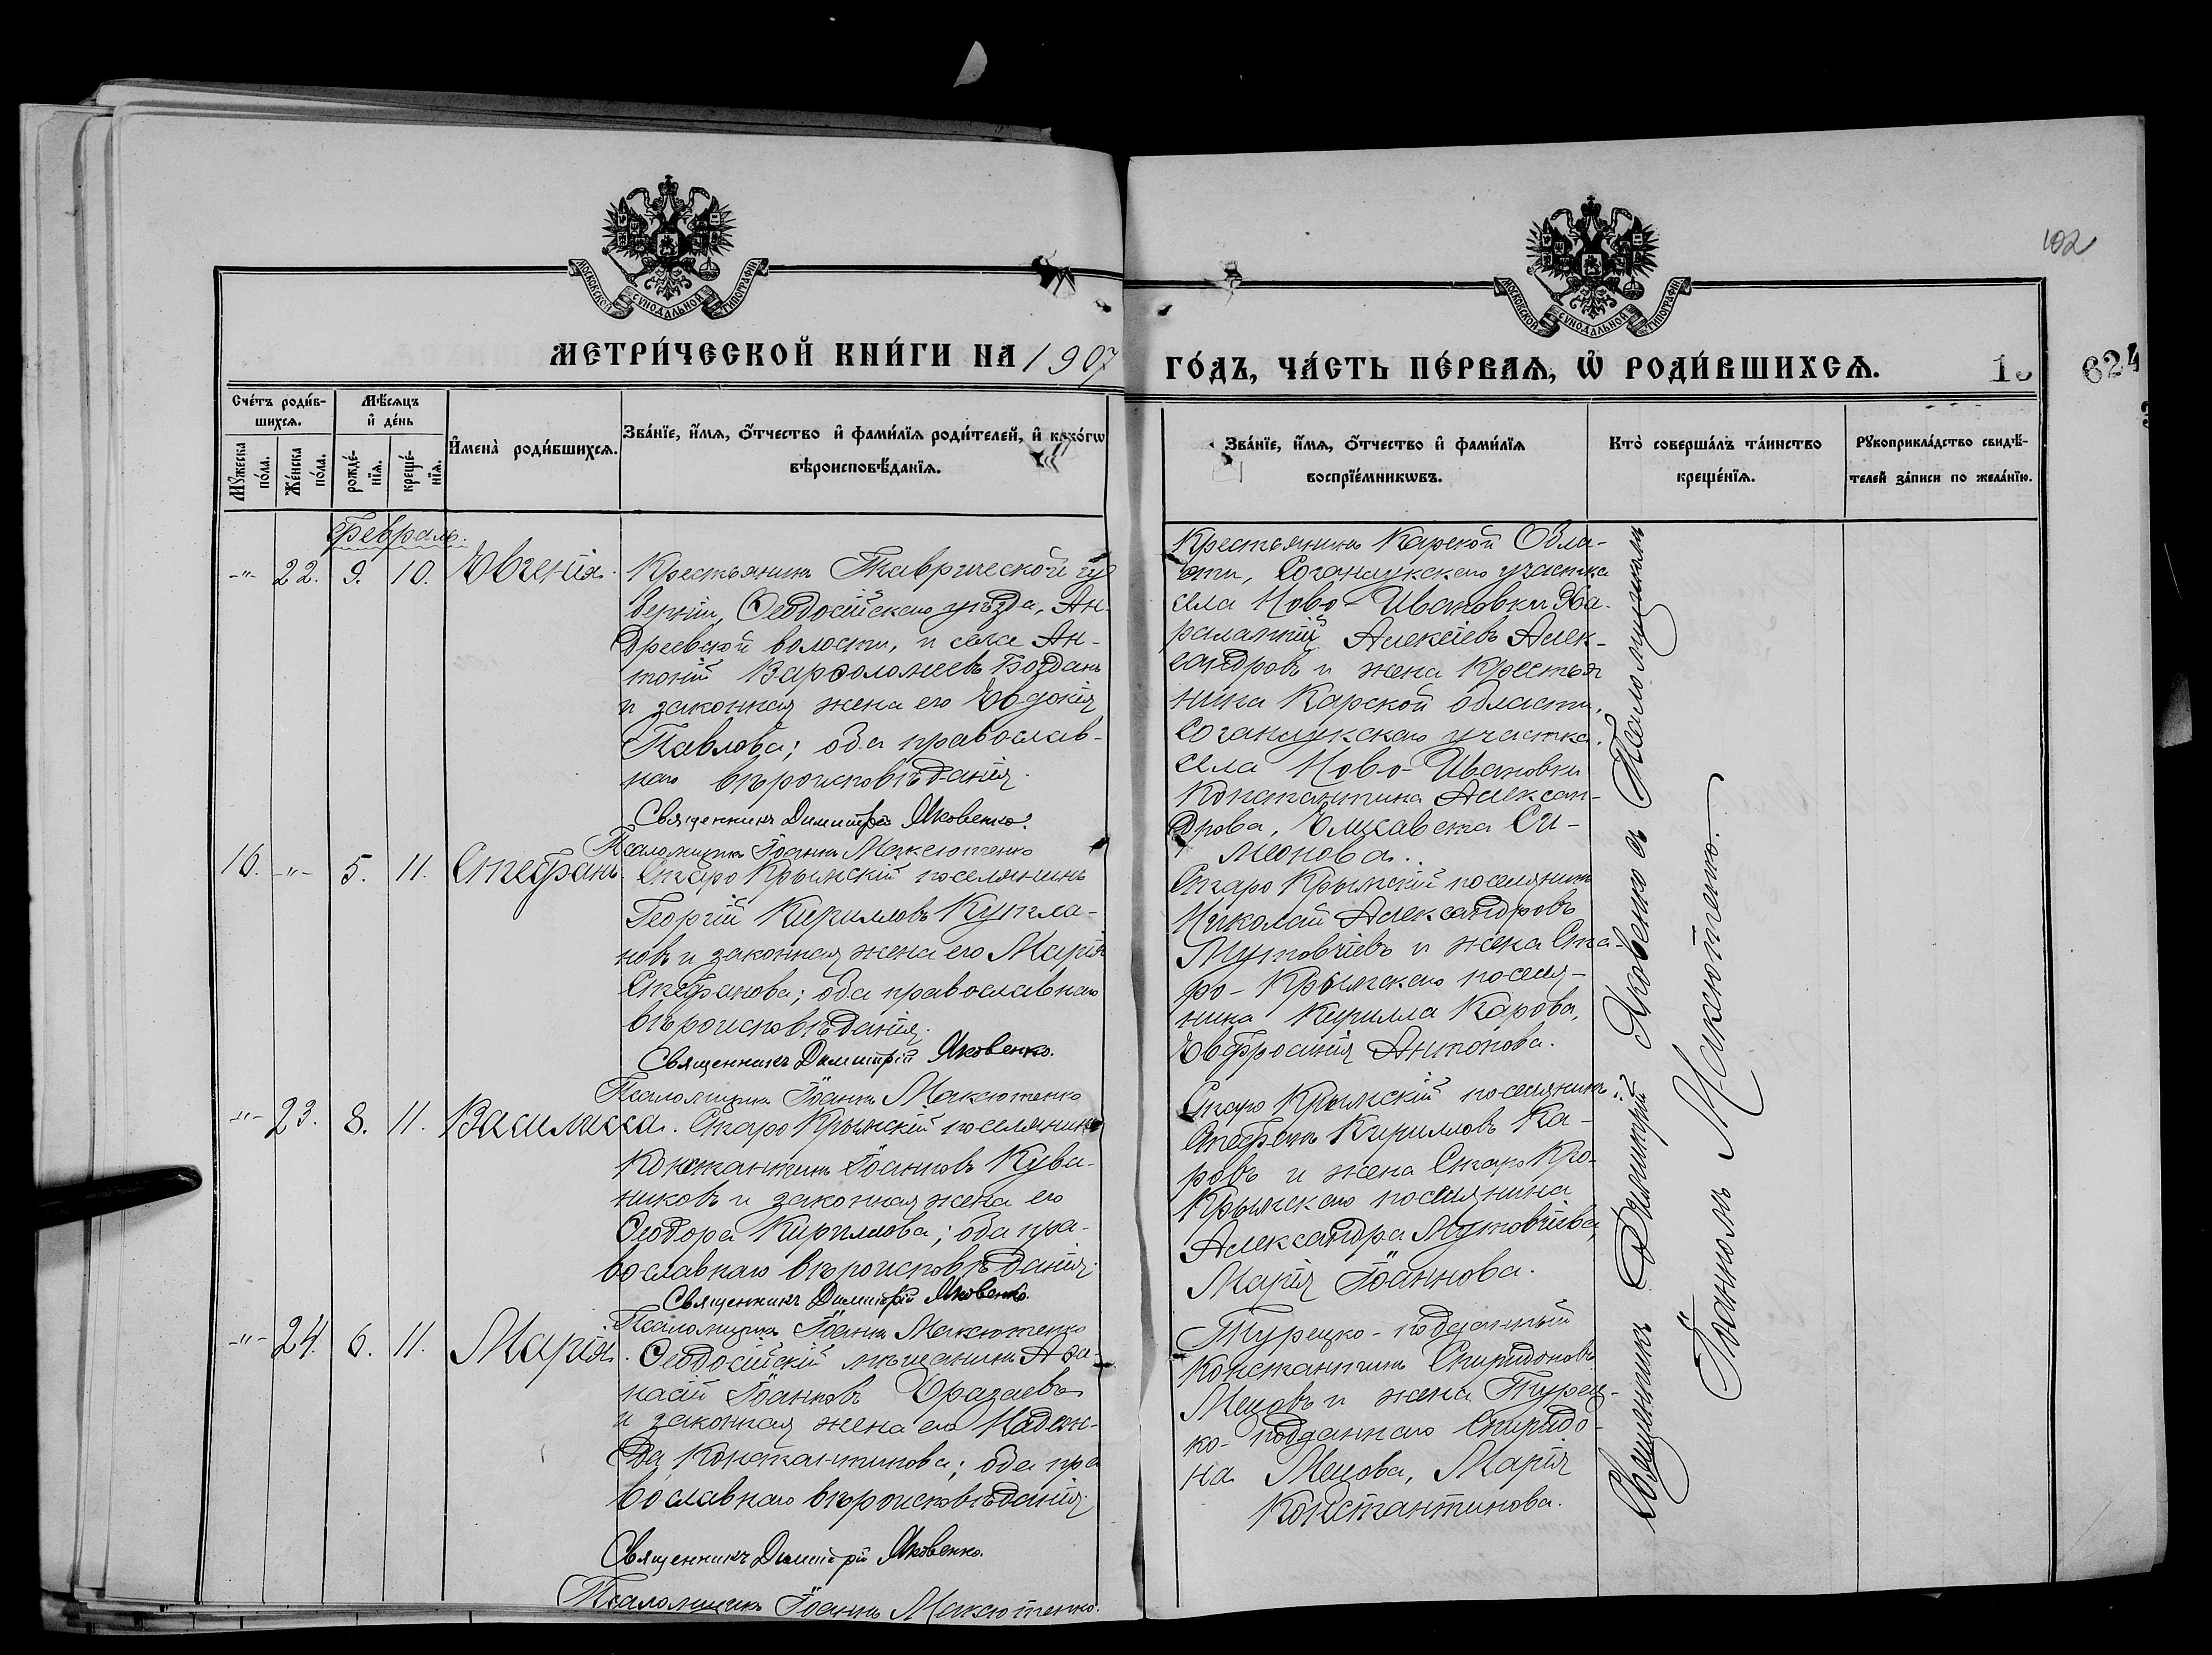 102
МОСКОВСКОЙ СУНОДАЛЬНОЙ ТИПОГРАФІИ
МОСКОВСКОЙ СУНОДАЛЬНОЙ ТИПОГРАФІИ
МЕТРИ́ЧЕСКОЙ КНИ́ГИ НА 1907
ГО́ДЪ, ЧА́СТЬ ПЕ́РВАѦ, Ѽ РОДИ́ВШИХСѦ.
624
Сче́тъ роди́в-
шихсѧ.
Мꙋжеска по́ла.
Же́нска по́ла.
Мѣ́сѧцъ
и҆ де́нь
рожде́-
нїѧ.
креще́-
нїѧ.
И҆мена̀ роди́вшихсѧ.
Зва́нїе, и҆́мѧ, ѻ҆́тчество и҆ фами́лїѧ роди́телей, и҆ како́гѡ
вѣроисповѣ́данїѧ.
Зва́нїе, и҆́мѧ, ѻ҆́тчество и҆ фами́лїѧ
воспрїе́мникѡвъ.
Кто̀ соверша́лъ та́инство
креще́нїѧ.
Рꙋкоприкла́дство свидѣ́-
телей за́писи по жела́нїю.
Февраль.
-"- 22. 9. 10. Евгенія.
Крестьянинъ Таврической гу
берніи, Ѳеодосійскаго уѣзда, Ан-
дреевской волости, и села Ан-
тоній Варѳоломеевъ Богданъ
и законная жена его Евдокія
Павлова; оба православ-
наго вѣроисповѣданія.
Священникъ Димитрій Яковенко.
Псаломщикъ Іоаннъ Максютенко
Крестьянинъ Карской Обла-
сти, Соганлукскаго участка
села Ново-Ивановки Ха-
ралампій Алексіевъ Алек-
сандровъ и жена крестья
нина Карской области,
Соганлукскаго участка.
села Ново-Ивановки
Константина Алексан-
дрова, Елисавета Си-
меонова.
16. -"- 5. 11. Стефанъ.
Старо Крымскій поселянинъ
Георгій Кирилловъ Купла-
новъ и законная жена его Марія
Стефанова; оба православнаго
вѣроисповѣданія.
Священникъ Димитрій Яковенко.
Псаломщикъ Іоаннъ Максютенко
Старо Крымскій поселянинъ
Николай Александровъ
Мутовчіевъ и жена Ста-
ро-Крымскаго поселя-
нина Кирилла Карова,
Евфросинія Антонова.
-"- 23. 8. 11. Василисса.
Старо Крымскій поселянинъ
Константинъ Іоанновъ Кува-
никовъ и законная жена его
Ѳеодора Кириллова; оба пра-
вославнаго вѣроисповѣданія.
Священникъ Димитрій Яковенко.
Псаломщикъ Іоаннъ Максютенко
Старо Крымскій поселянинъ
Стефанъ Кирилловъ Ка-
ровъ и жена Старо Кро-
Крымскаго поселянина
Александра Мутовчіева,
Марія Іоаннова.
-"- 24. 6. 11. Марія.
Ѳеодосійскій мѣщанинъ Аѳа-
насій Іоанновъ
и законная жена его Надеж-
да Константинова; оба пра
вославнаго вѣроисповѣданія.
Священникъ Димитрій Яковенко.
Псаломщикъ Іоаннъ Максютенко.
Турецко-подданный
Константинъ Спиридоновъ
Мецовъ и жена Турец-
ко-подданнаго Спиридо-
на Мецова, Марія
Константинова.
Священникъ Димитрій Яковенко съ Псаломщикомъ
Іоанномъ Максютенко.